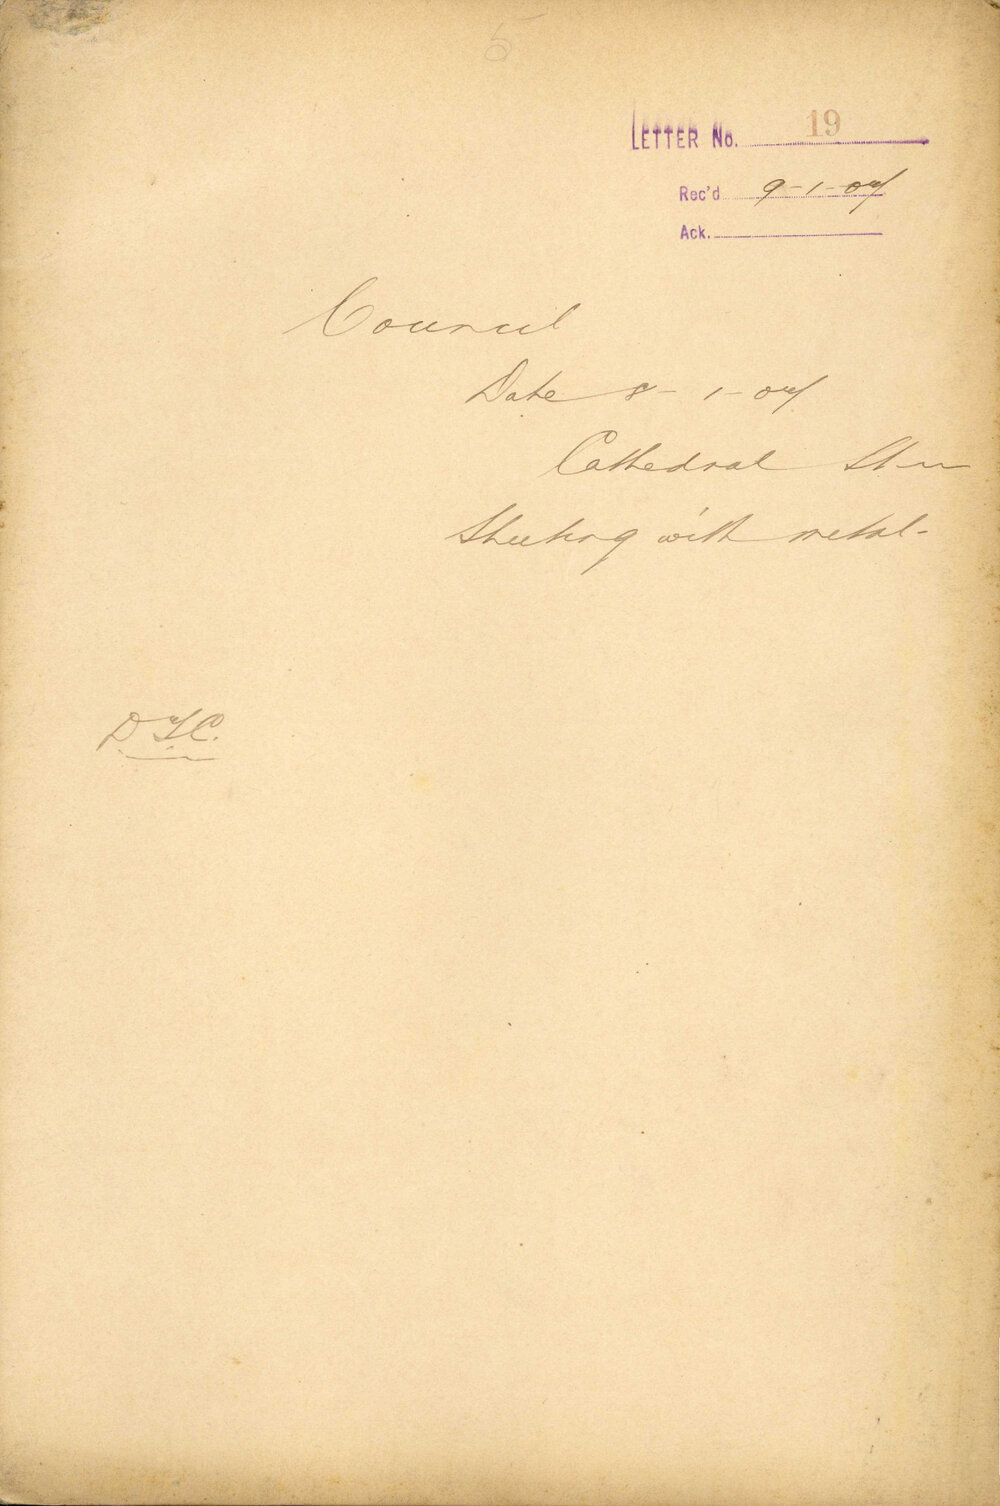 5
LETTER No. 19
Rec'd 9-1-07
Ack.
Council
Date 8-1-07
Cathedral
Sheeting with metal-